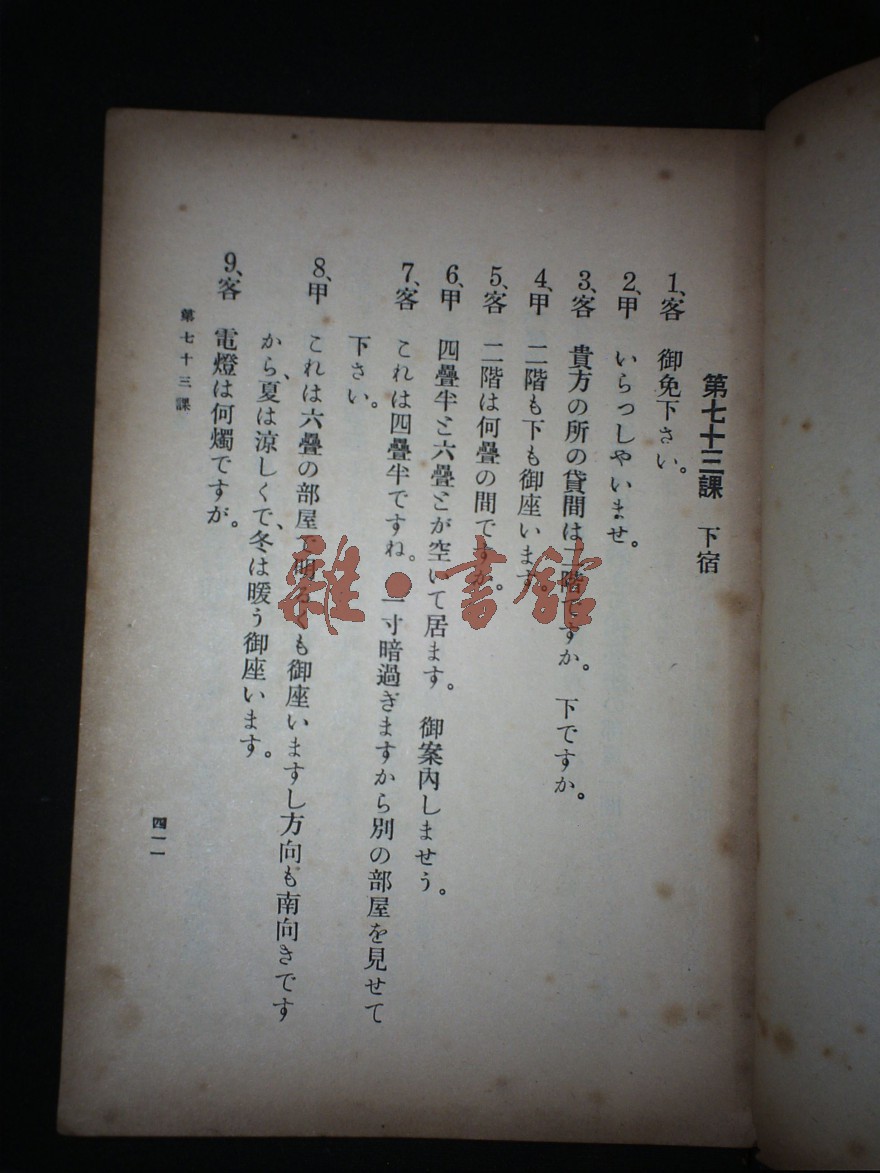 第七十三課　下宿
1、客　御免下さい。
2、甲　いらつしやいませ。
3、客　貴方の所の貸間は二階ですか。　下ですか。
4、甲　二階も下も御座います。
5、客　二階は何疊の間ですか。
6、甲　四疊半と六疊とが空いて居ます。　御案內しませう。
7、客　これは四疊半ですね。一寸暗過ぎますから別の部屋を見せて
下さい。
8、甲　これは六疊の部屋で明るくも御座いますし方向も南向きです
から、夏は涼しくで、冬は暖う御座います。
9、客　電燈は何燭ですが。
第七十三課
四一一
雜·書館